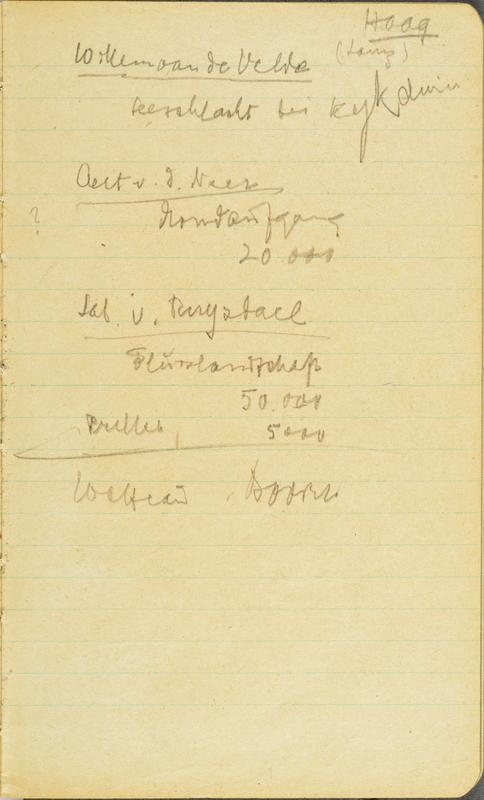 Haag
(Lanz)
Willem van de Velde
Seeschlacht bei Kijkduin
Aert v. d. Neer
?
Mondaufgang
20.000
Sal. v. Ruysdael
Flusslandschaft
50.000
5000